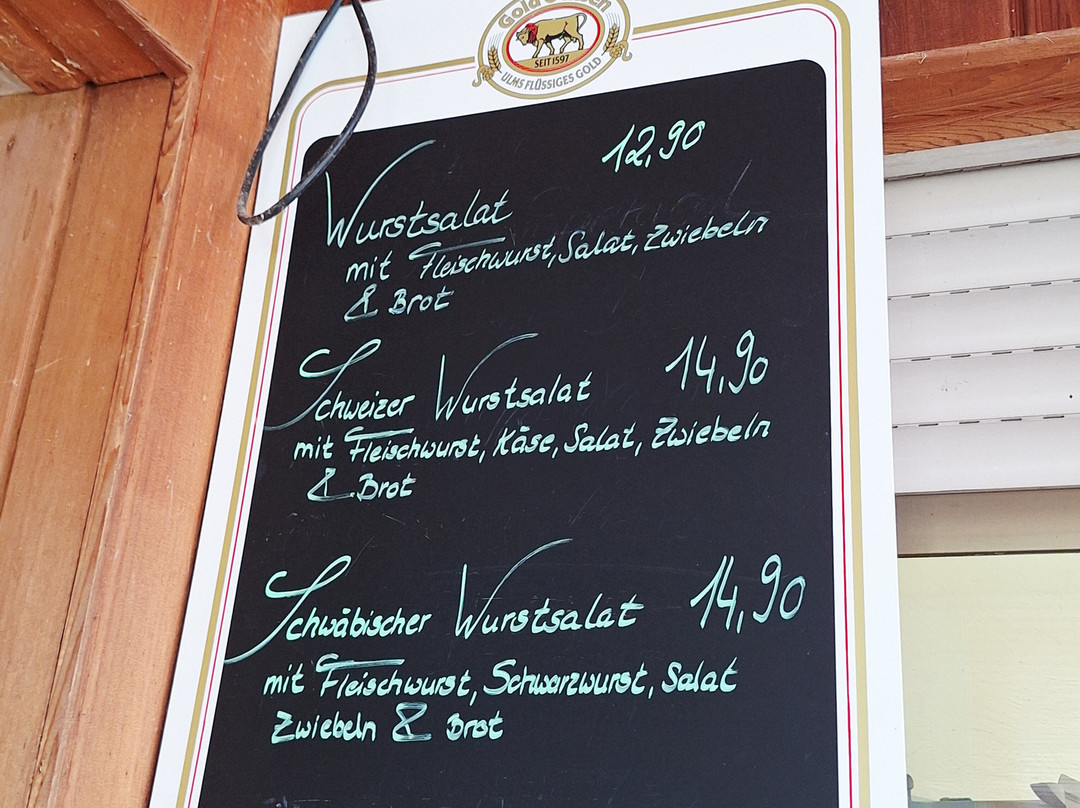 SEIT 1597
ULMS FLÜSSIGES GOLD
12,90
Wurstsalat
mit Fleischwurst, Salat, Zwiebeln
& Brot
Schweizer Wurstsalat 14,90
mit Fleischwurst, Käse, Salat, Zwiebeln
& Brot
Schwäbischer Wurstsalat 14,90
mit Fleischwurst, Schwarzwurst, Salat
Zwiebeln & Brot